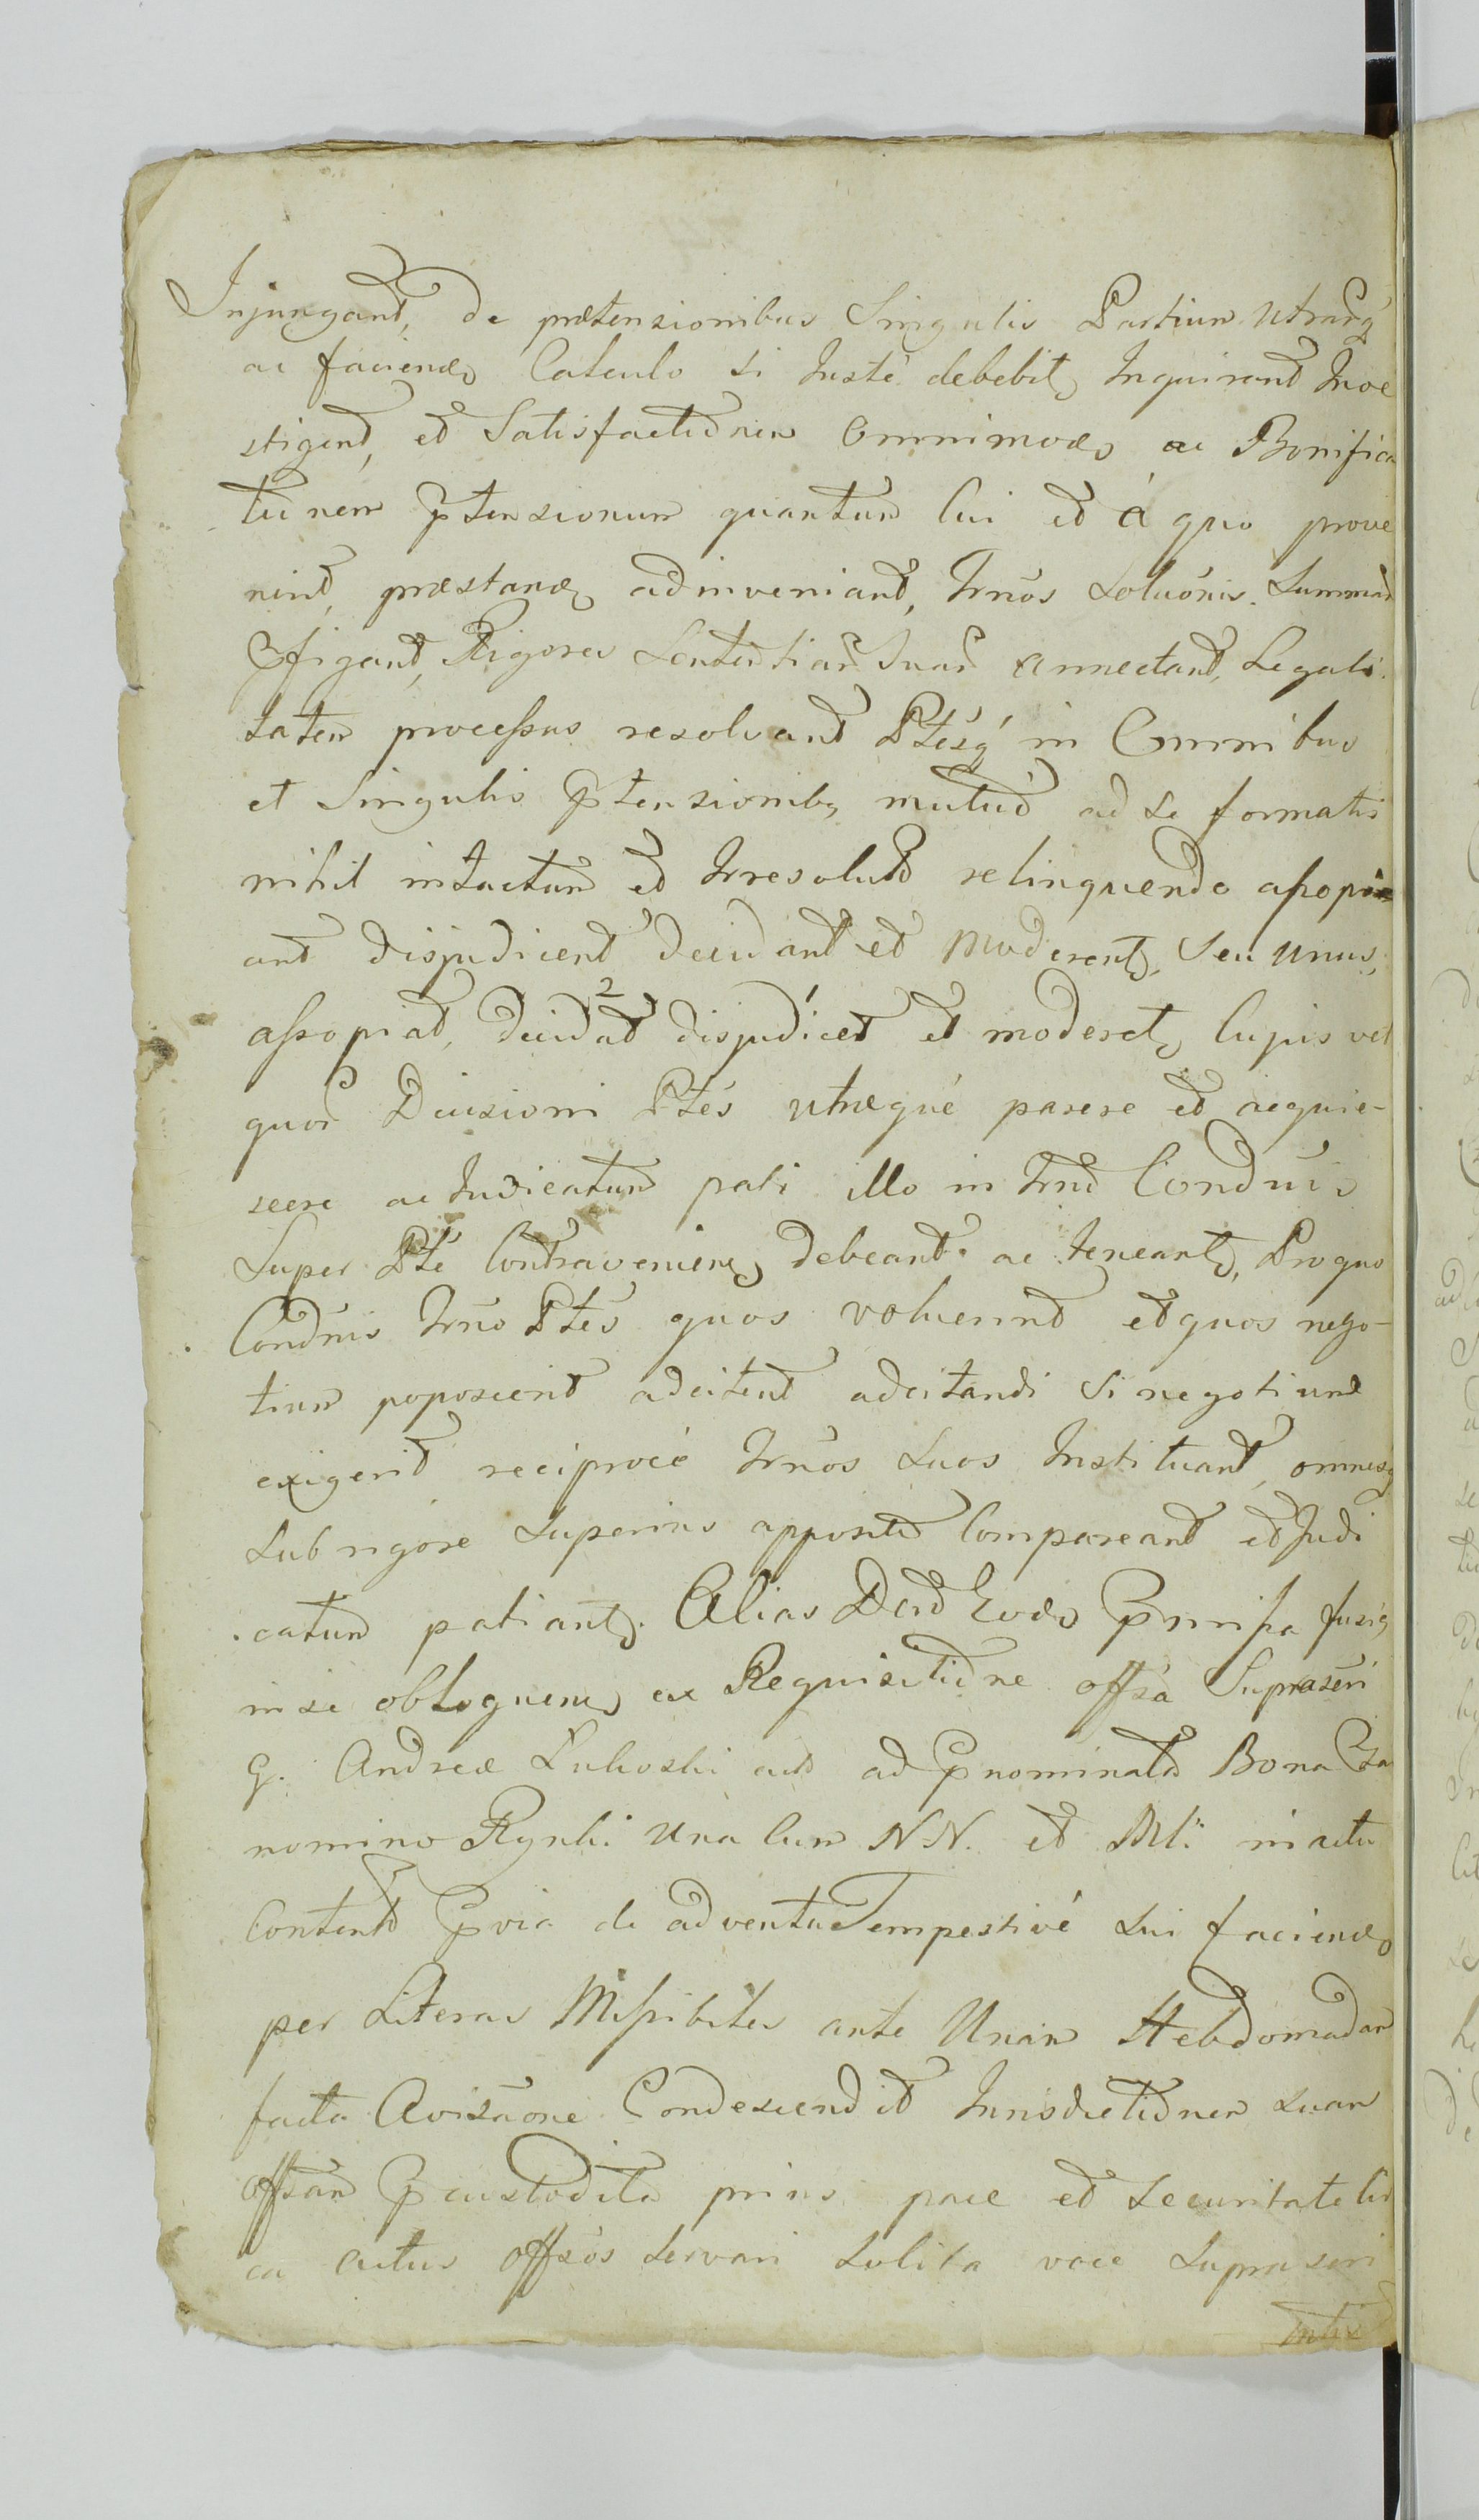 Injungant, de prætensionibus Singulis Partium Utrarq
ac faciend Calculo si Juste debebit, Inquirant Inve
stigent, et Satisfactionem Omnimod ac Bonifica
tionem Ptensionum quantum Cui et á quo prove
nint, præstand adinveniant, Trnos Solunis. Summar
Pfigant, Rigores Sententiar Suar annectant, Legali
tatem processus resolvant Ptesq in Omnibus
et Singulis Ptensionibq mutuo ad se formatis
nihil intactum et Irresolut relinquendo assopi
ant disjudicent Decidant et Moderent, Seu Unus,
assopiat, Decidat 2 disjudicet 1 et moderet, Cujus vel
quor Decisioni Ptes utræque parere et acquie-
scere ac Judicatum pati illo in Trno Condnis
Super Pte Contravenien, debeant ac teneant, Pro quo
Condnis Trno Ptes quos voluerint et quos nego-
tium poposcerit adcitent adcitandi si negotium
exigerit reciproce Trnos Suos Instituant, omnesq
Sub rigore Superius apposito Compareant et Judi
catum patiant. Alias Dend Evod Pmissa fusiq
in se obloquen, ex Requisitione offsa Suprascri
G. Andreæ Lukoski ad Pnominata Bona
nomino Rynki Una Cum NN. et Mli in actu
Content Pvia de adventu Tempestivé Sui faciend
per Literas Missibiles ante Unam Hebdomadam
facta Avisaone Condescendit Jurisdictionem Suam
offsam Pcustodita prius pace et Securitate Cir
ca actus offsos Servari Solita voce Suprascri